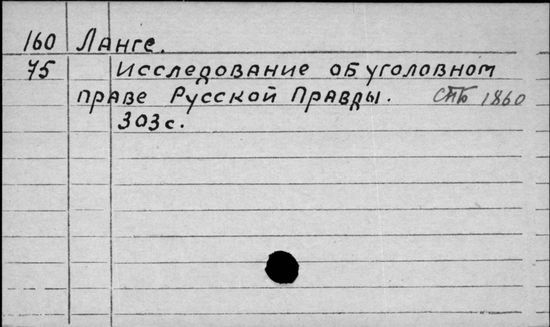 160 Ланге.
75 Исследование об уголовном
праве Русской Правды. СПБ 1860
303 с.